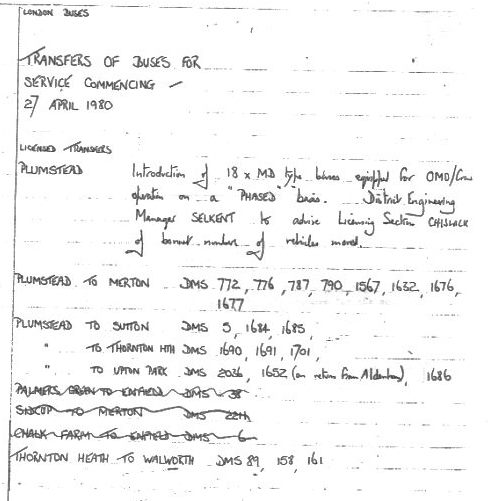 LONDON BUSES
TRANSFERS OF BUSES FOR
SERVICE COMMENCING –
27 APRIL 1980
LICENSED TRANSFERS
PLUMSTEAD Introduction of 18 x MD type buses equipped for OMO/Crew
operation on a "PHASED" basis. District Engineering
Manager SELKENT to advise Licensing Section CHISWICK
of bonnet numbers of vehicles moved.
PLUMSTEAD TO MERTON DMS 772, 776, 787, 790, 1567, 1632, 1676,
1677
PLUMSTEAD TO SUTTON DMS 5, 1684, 1685,
" TO THORNTON HTH DMS 1690, 1691, 1701,
" TO UPTON PARK DMS 2036, 1652 (on return from Aldenham), 1686
PALMERS GREEN TO ENFIELD DMS 38
SIDCUP TO MERTON DMS
CHALK FARM TO ENFIELD DMS 6
THORNTON HEATH TO WALWORTH DMS 89, 158, 161